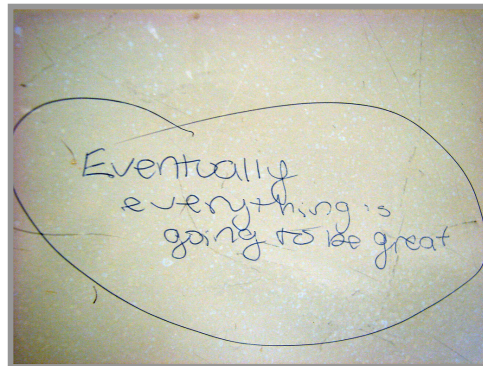 Eventually
everything is
going to be great